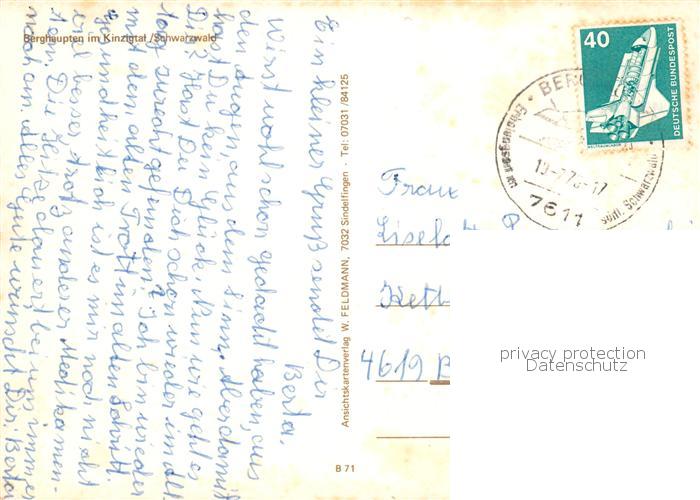 Berghaupten im Kinzigtal /Schwarzwald
Ein kleiner Gruß sendet Dir
Berta.
Wirst wohl schon gedacht haben, aus
den Augen, aus dem Sinn. Aber damit
hast Du kein Glück. Nun wie geht es
Dir? Hast Du Dich schon wieder im All-
tag zurecht gefunden? Ich bin wieder
mit dem alten Trott im alten Schritt.
gesundheitlich ist es mir noch nicht
viel besser, trotz anderer Medikamen-
ten. Die Zeit dauert bei uns immer
noch an. Alles Gute wünscht Dir Berta
Ansichtskartenverlag W. FELDMANN, 7032 Sindelfingen · Tel: 07031/84125
B 71
40
DEUTSCHE BUNDESPOST
WELTRAUMLABOR
BERG
7611
Schwarzwald
Frau
4619 B
privacy protection
Datenschutz